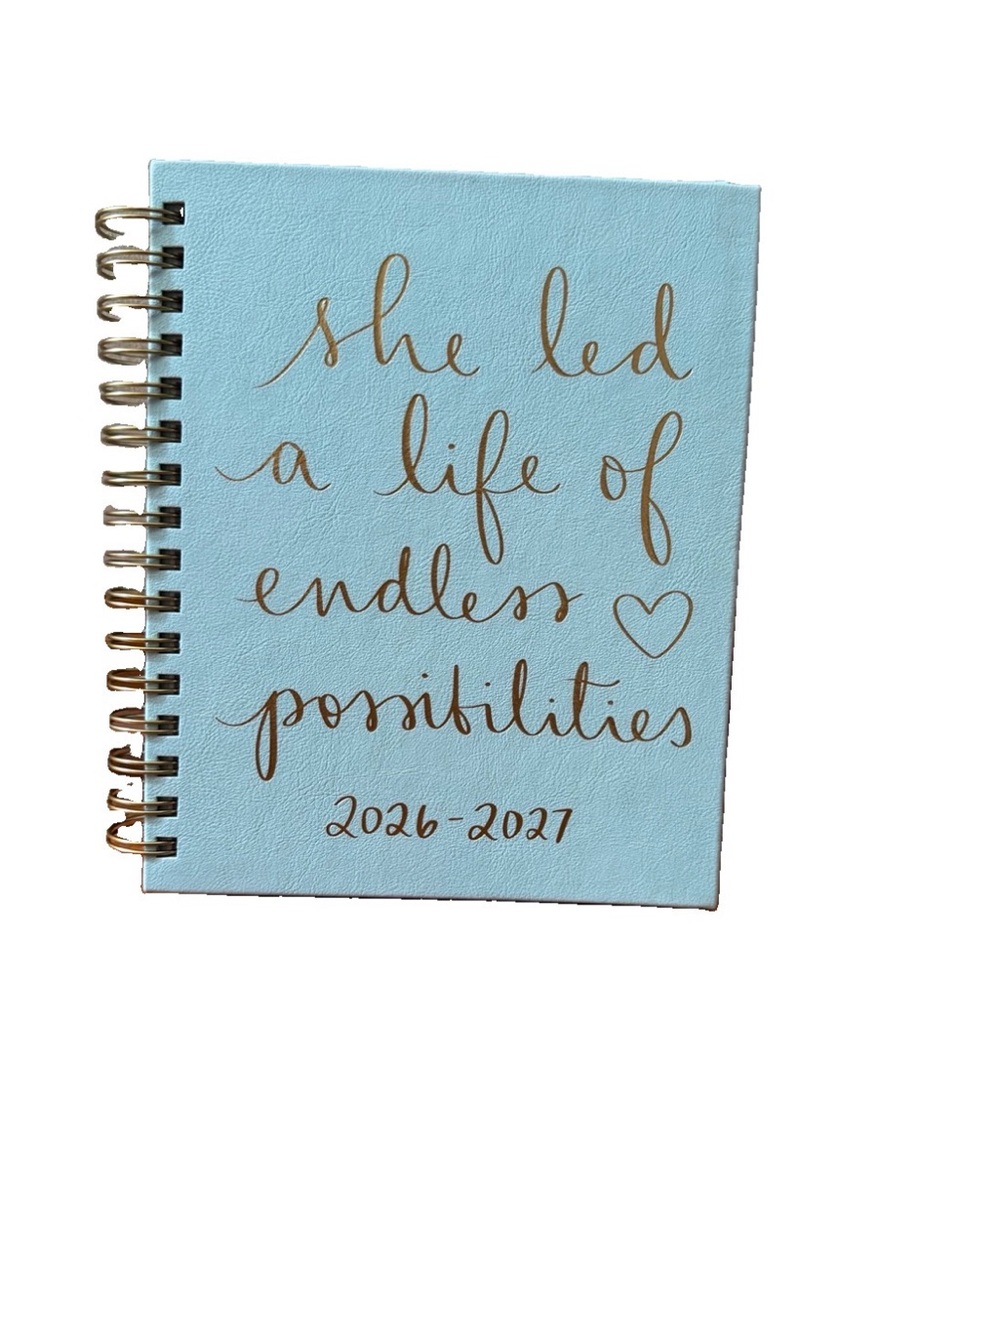 she led
a life of
endless
possibilities
2026-2027